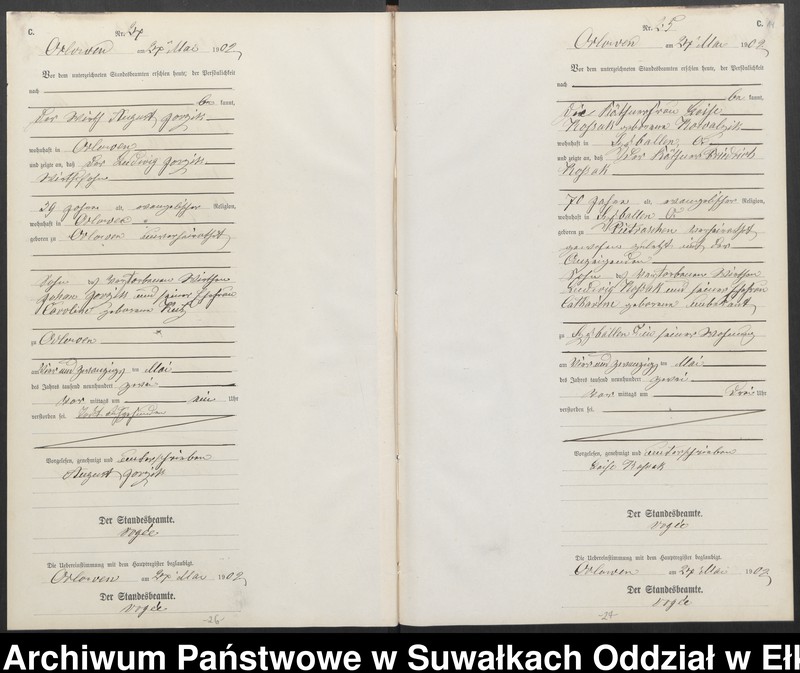 C.
Nr. 24
Orlowen am 24ten Mai 1902
Vor dem unterzeichneten Standesbeamten erschien heute, der Persönlichkeit
nach
be kannt,
der Wirth August Gorzik
wohnhaft in Orlowen
und zeigte an, daß der Ludwig Gorzik
Wirthssohn
39 Jahre alt, evangelischer Religion,
wohnhaft in Orlowen
geboren zu Orlowen unverheirathet
Sohn des verstorbenen Wirthen
Johann Gorzik und seiner Ehefrau
Caroline geborene
zu Orlowen
am vier und zwanzigsten Mai
des Jahres tausend neunhundert zwei
Vor mittags um ein Uhr
verstorben sei. todt aufgefunden
Vorgelesen, genehmigt und unterschrieben
August Gorzik
Der Standesbeamte.
Die Uebereinstimmung mit dem Hauptregister beglaubigt.
Orlowen am 24ten Mai 1902
Der Standesbeamte.
-26-
C.
Nr. 25
Orlowen am 24ten Mai 1902
Vor dem unterzeichneten Standesbeamten erschien heute, der Persönlichkeit
nach
be kannt,
die Käthnerfrau Loise
Kossak geborene Kowalzik
wohnhaft in
und zeigte an, daß der Käthner Friedrich
Kossak
70 Jahre alt, evangelischer Religion,
wohnhaft in
geboren zu Pietraschen verheirathet
gewesen zuletzt mit der
Anzeigenden
Sohn des verstorbenen Wirthen
Ludwig Kossak und seiner Ehefrau
Catharine geborene unbekannt
zu in seiner Wohnung
am vier und zwanzigsten Mai
des Jahres tausend neunhundert zwei
Vor mittags um drei Uhr
verstorben sei.
Vorgelesen, genehmigt und unterschrieben
Loise Kossak
Der Standesbeamte.
Die Uebereinstimmung mit dem Hauptregister beglaubigt.
Orlowen am 24ten Mai 1902
Der Standesbeamte.
-27-
Archiwum Państwowe w Suwałkach Oddział w Ełk